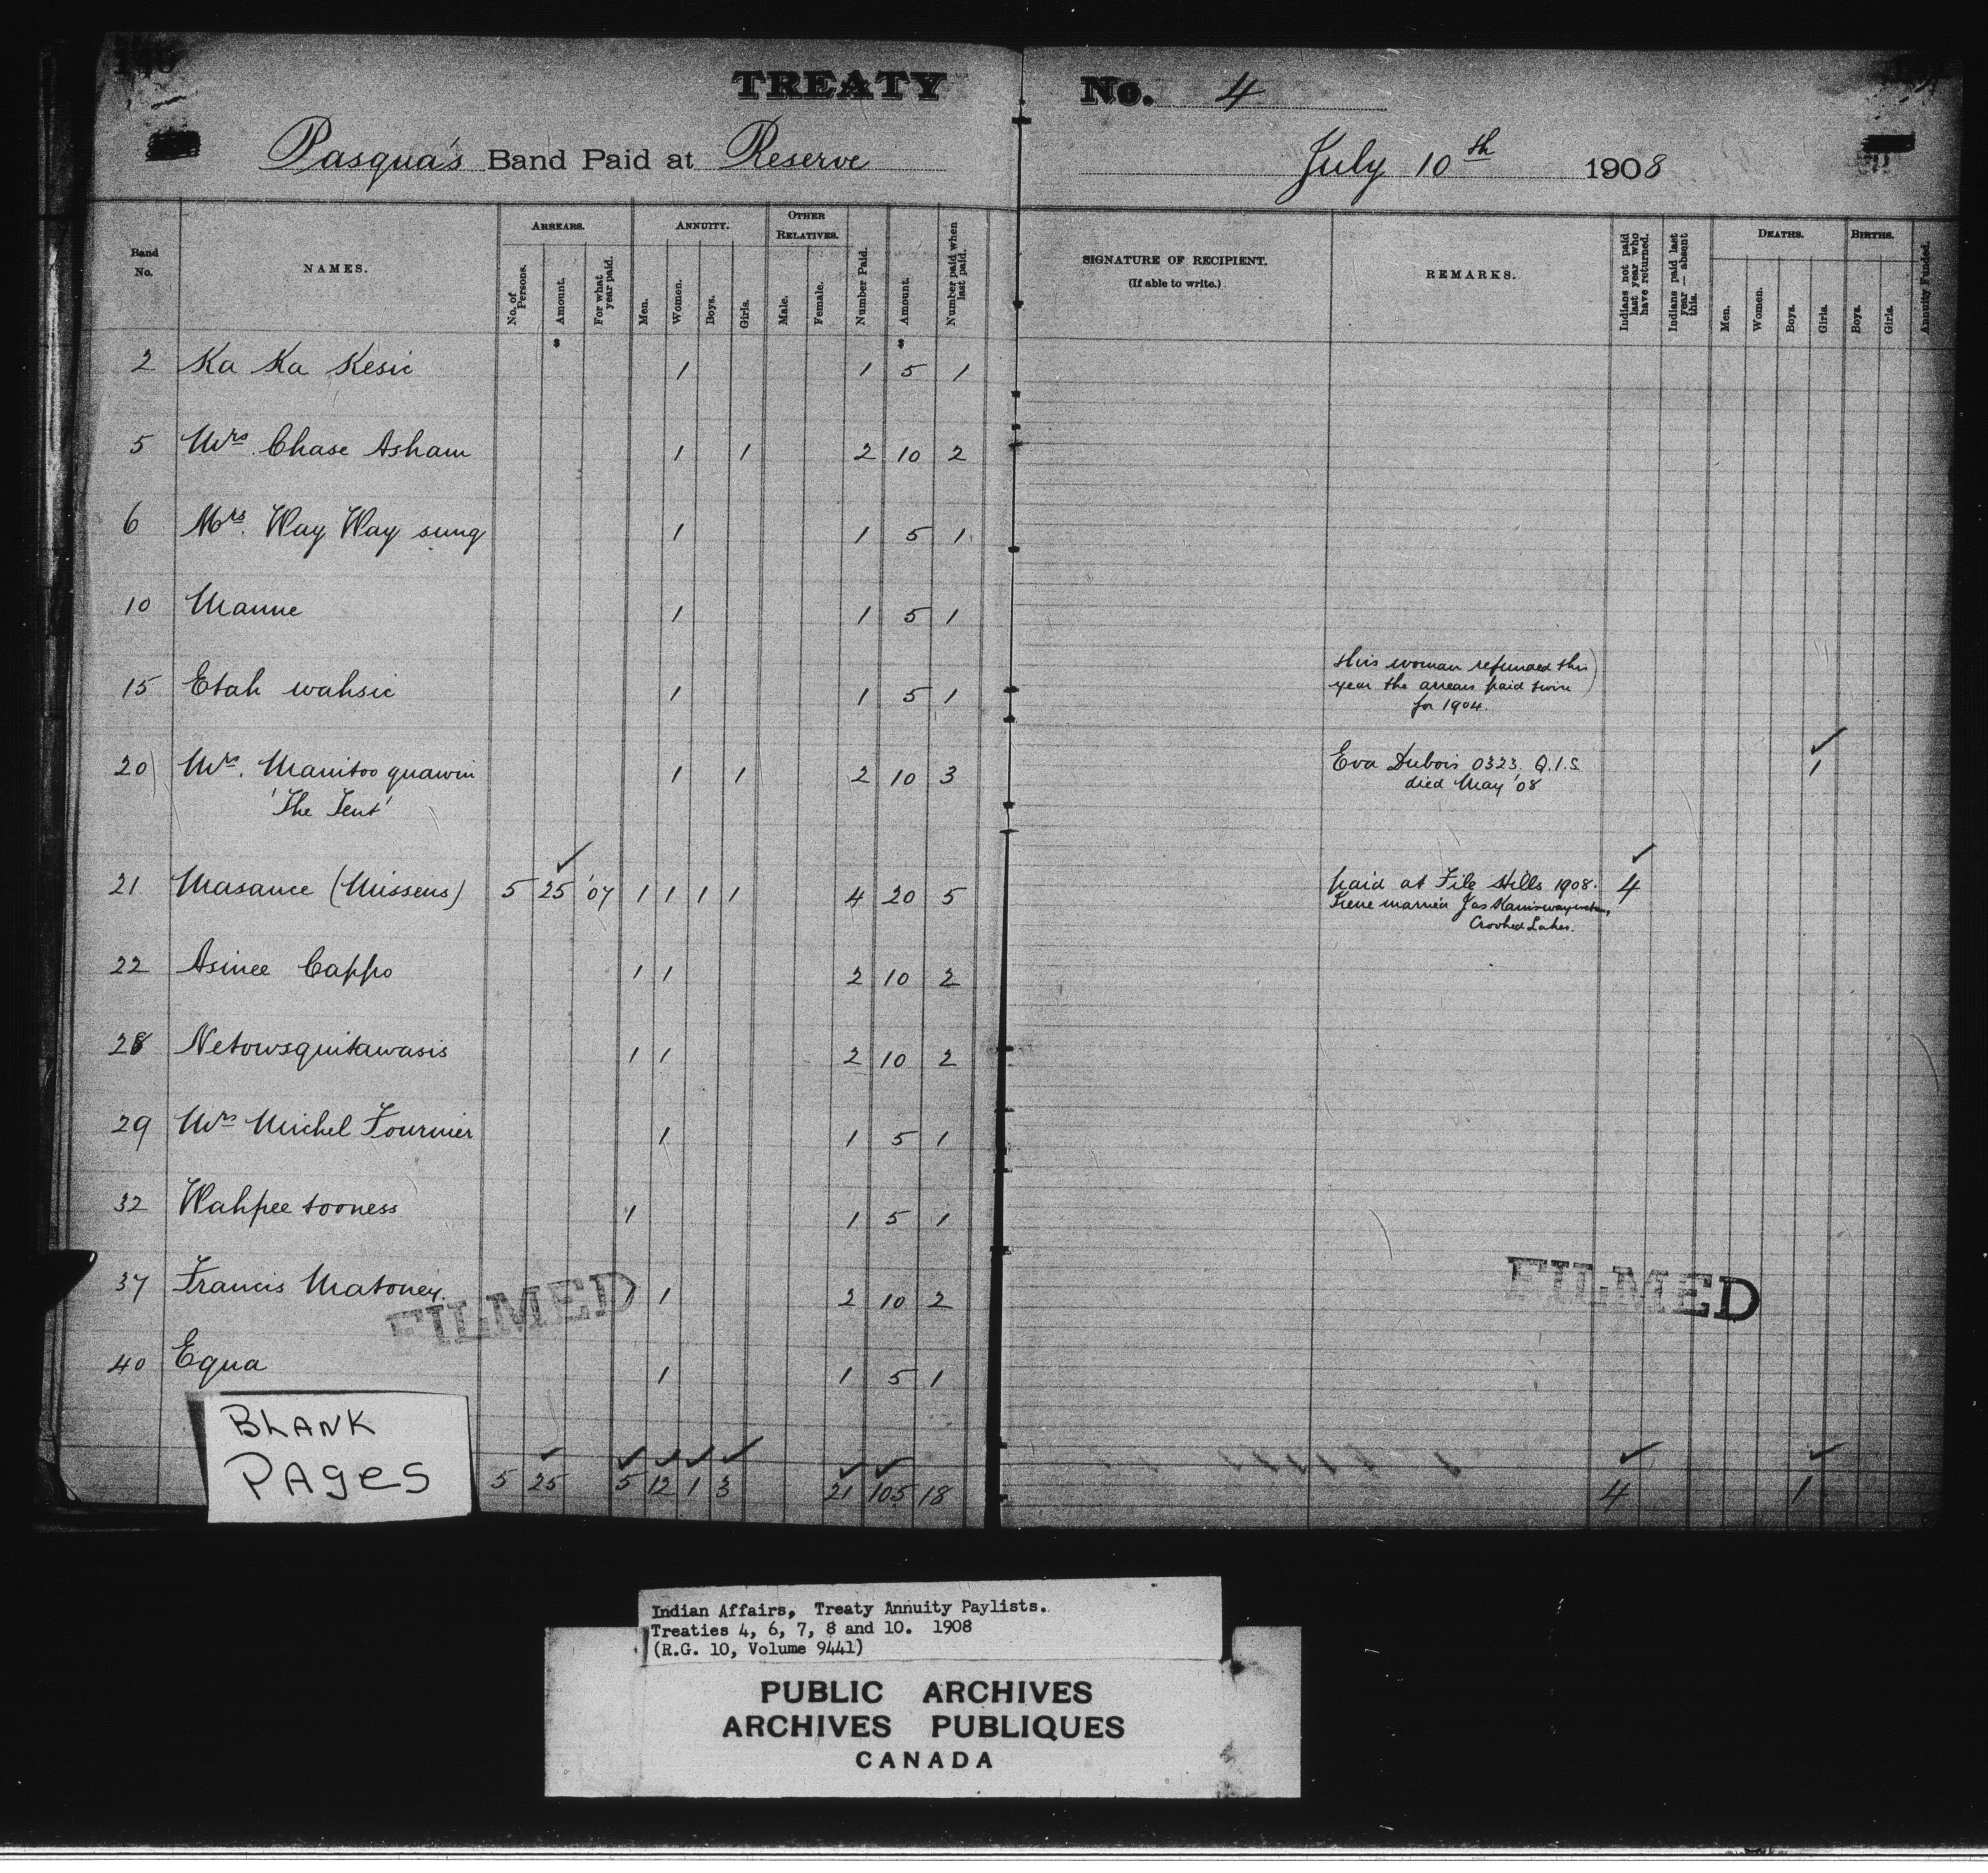 TREATY No. 4
Pasqua's Band Paid at Reserve July 10th 1908
Band No.
NAMES.
ARREARS.
No. of Persons.
Amount.
For what year paid.
ANNUITY.
Men.
Women.
Boys.
Girls.
OTHER RELATIVES.
Male.
Female.
Number Paid.
Amount.
Number paid when last paid.
SIGNATURE OF RECIPIENT.
(If able to write.)
REMARKS.
Indians not paid last year who have returned.
Indians paid last year — absent this.
DEATHS.
Men.
Women.
Boys.
Girls.
BIRTHS.
Boys.
Girls.
Annuity Funded.
$ $
2 Ka Ka Kesic 1 1 5 1
5 Mrs Chase Asham 1 1 2 10 2
6 Mrs. Way Way sung 1 1 5 1
10 Manne 1 1 5 1
15 Etah wahsic 1 1 5 1 this woman refunded this
year the arrears paid twice
for 1904.
20 Mrs. Manitoo quawin 1 1 2 10 3 Eva Dubois 0323. Q.I.S. 1
'The Tent' died May '08
21 Masance (Missens) 5 25 '07 1 1 1 1 4 20 5 paid at File Hills 1908. 4
Irene married Jas
Crooked Lakes.
22 Asinee Cappo 1 1 2 10 2
28 Netowsquitawasis 1 1 2 10 2
29 Mrs Michel Fournier 1 1 5 1
32 Wahpee tooness 1 1 5 1
37 Francis Matoney. 1 1 2 10 2
40 Equa 1 1 5 1
FILMED
FILMED
BLANK
PAges
5 25 5 12 1 3 21 105 18 4 1
Indian Affairs, Treaty Annuity Paylists.
Treaties 4, 6, 7, 8 and 10. 1908
(R.G. 10, Volume 9441)
PUBLIC ARCHIVES
ARCHIVES PUBLIQUES
CANADA